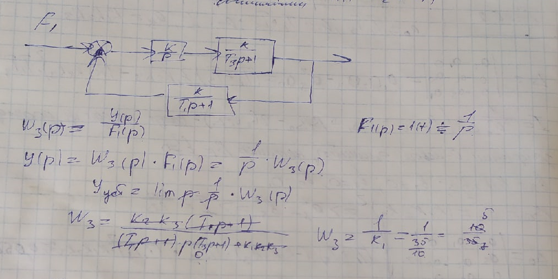 F₁
K/p
K/(T₃p+1)
K/(T₁p+1)
W₃(p) = y(p)/F₁(p)
F₁(p) = 1(t) ≓ 1/p
y(p) = W₃(p) · F₁(p) = 1/p · W₃(p)
= lim p 1/p · W₃(p)
W₃ = K₂ K₃ (T₁p+1) / (T₁p+1) · p(T₃p+1) + K₁K₂K₃
W₃ = 1/K₁ = 1/(35/10) =